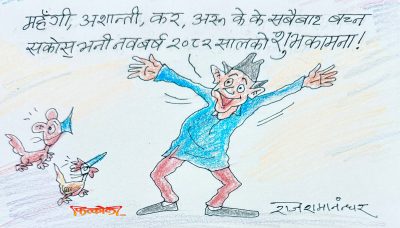 महँगी, अशान्ती, कर, अरू के के सबैबाट बच्न
सकोस् भनी नवबर्ष २०८२ सालको शुभकामना!
राजशमानन्धर